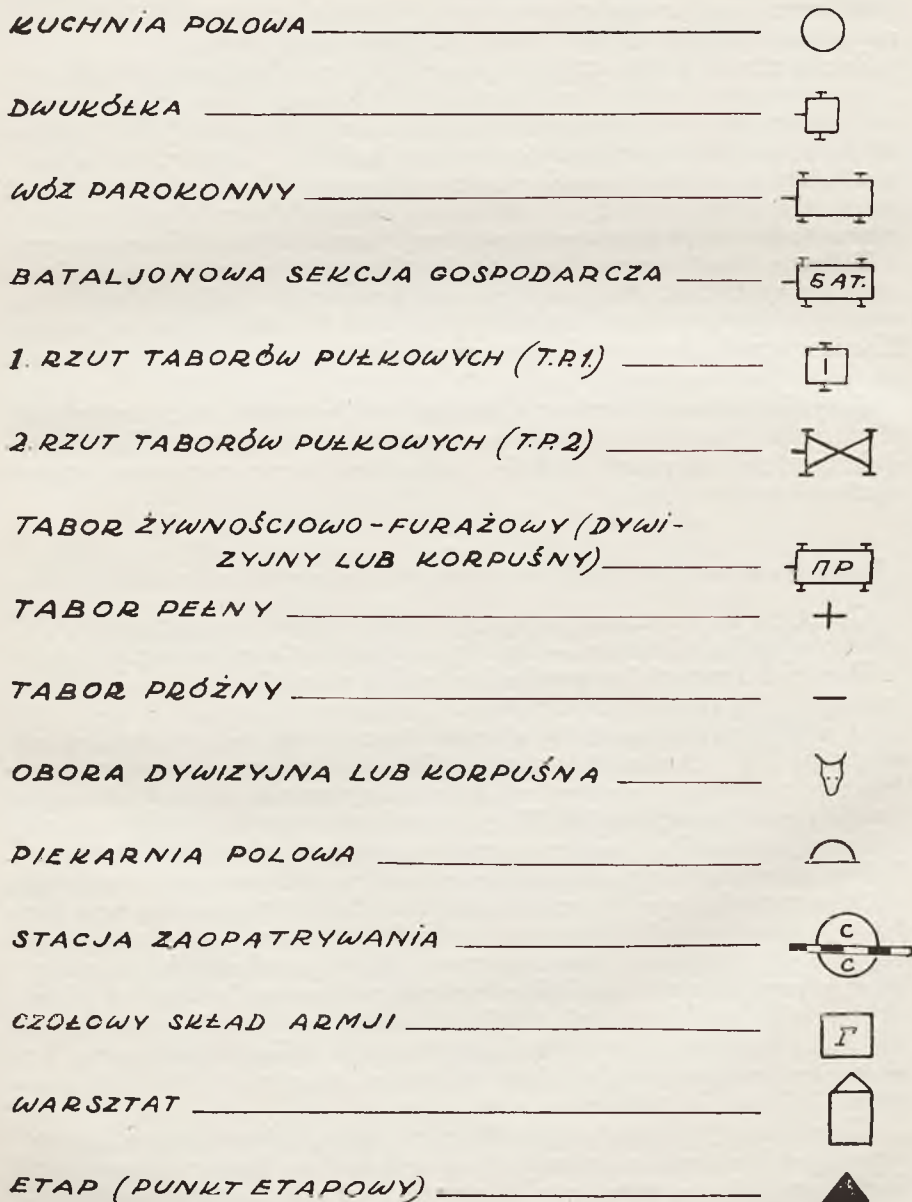 KUCHNIA POLOWA
DWUKÓŁKA
WÓZ PAROKONNY
BATALJONOWA SEKCJA GOSPODARCZA БАТ.
1. RZUT TABORÓW PUŁKOWYCH (T.P.1.) I
2. RZUT TABORÓW PUŁKOWYCH (T.P.2)
TABOR ŻYWNOŚCIOWO-FURAŻOWY (DYWI-
ZYJNY LUB KORPUŚNY) ПР
TABOR PEŁNY +
TABOR PRÓŻNY —
OBORA DYWIZYJNA LUB KORPUŚNA
PIEKARNIA POLOWA
STACJA ZAOPATRYWANIA C
C
CZOŁOWY SKŁAD ARMJI Г
WARSZTAT
ETAP (PUNKT ETAPOWY)